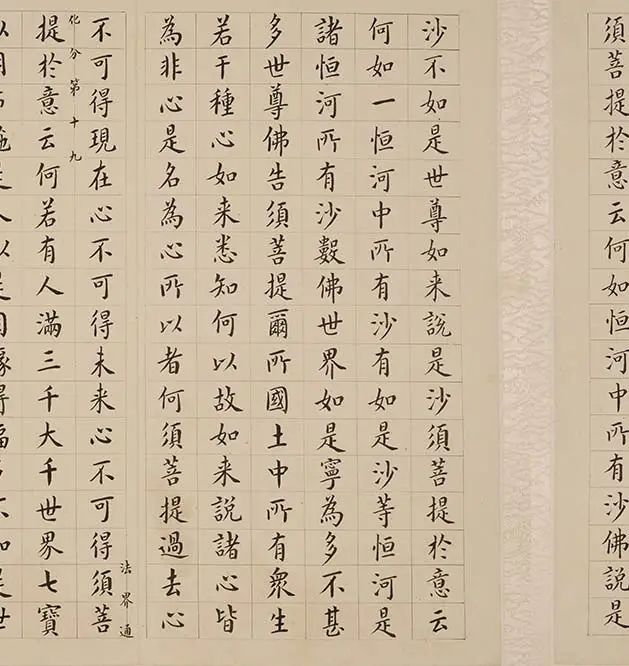 須菩提於意云何如恒河中所有沙佛說是
沙不如是世尊如来說是沙須菩提於意云
何如一恒河中所有沙有如是沙等恒河是
諸恒河所有沙數佛世界如是寧為多不甚
多世尊佛告須菩提爾所國土中所有衆生
若干種心如来悉知何以故如来說諸心皆
為非心是名為心所以者何須菩提過去心
法界通
不可得現在心不可得未来心不可得須菩
化分第十九
提於意云何若有人滿三千大千世界七寶
以用布施是人以是因緣得福多不如是世